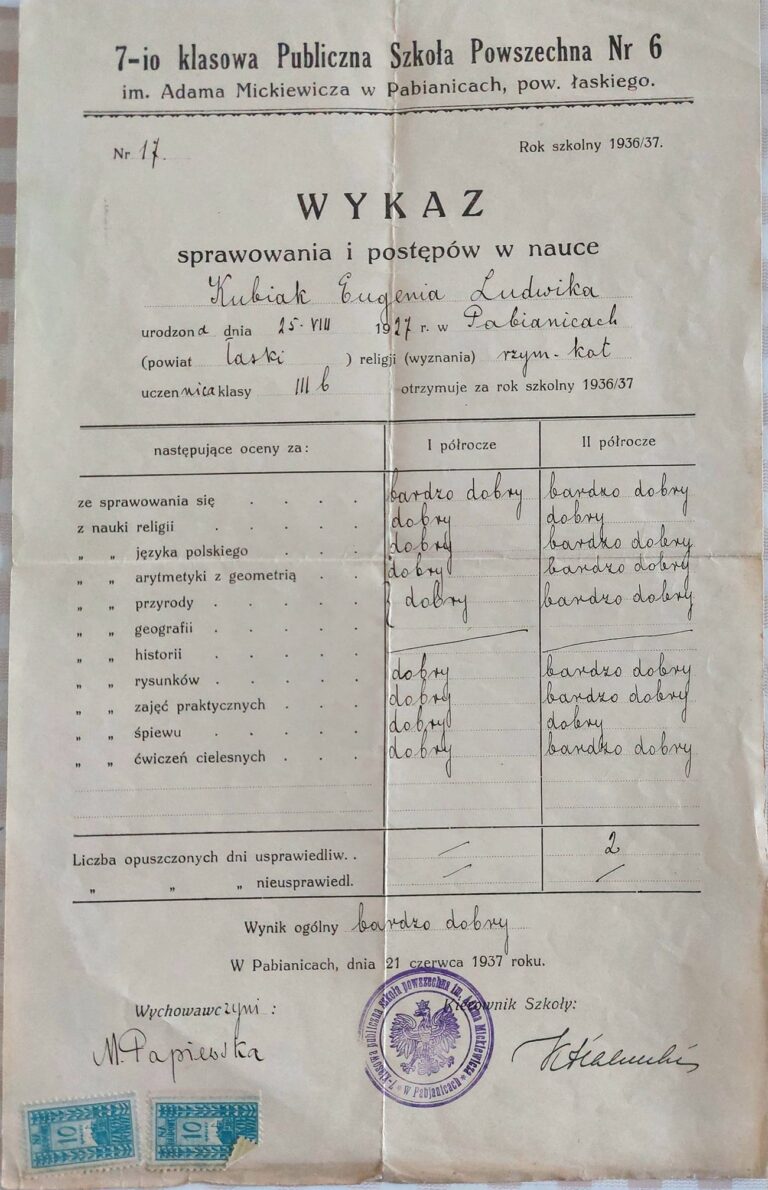 7-io klasowa Publiczna Szkoła Powszechna Nr 6
im. Adama Mickiewicza w Pabianicach, pow. łaskiego.
Nr 17. Rok szkolny 1936/37.
WYKAZ
sprawowania i postępów w nauce
Kubiak Eugenia Ludwika
urodzona dnia 25. VIII 1927 r. w Pabianicach
(powiat łaski ) religji (wyznania) rzym.-kat
uczennica klasy III b otrzymuje za rok szkolny 1936/37
następujące oceny za: I półrocze II półrocze
ze sprawowania się . . . . bardzo dobry bardzo dobry
z nauki religii . . . . . dobry dobry
„ „ języka polskiego . . . dobry bardzo dobry
„ „ arytmetyki z geometrią . . dobry bardzo dobry
„ „ przyrody . . . . . { dobry bardzo dobry
„ „ geografii . . . . .
„ „ historii . . . . .
„ „ rysunków . . . . . dobry bardzo dobry
„ „ zajęć praktycznych . . . dobry bardzo dobry
„ „ śpiewu . . . . . dobry dobry
„ „ ćwiczeń cielesnych . . . dobry bardzo dobry
Liczba opuszczonych dni usprawiedliw. . / 2
„ „ „ nieusprawiedl. / /
Wynik ogólny bardzo dobry
W Pabianicach, dnia 21 czerwca 1937 roku.
Wychowawczyni : Kierownik Szkoły:
M. Papiewska
7-klasowa publiczna szkoła powszechna im. Adama Mickiewicza * w Pabjanicach *
10 10